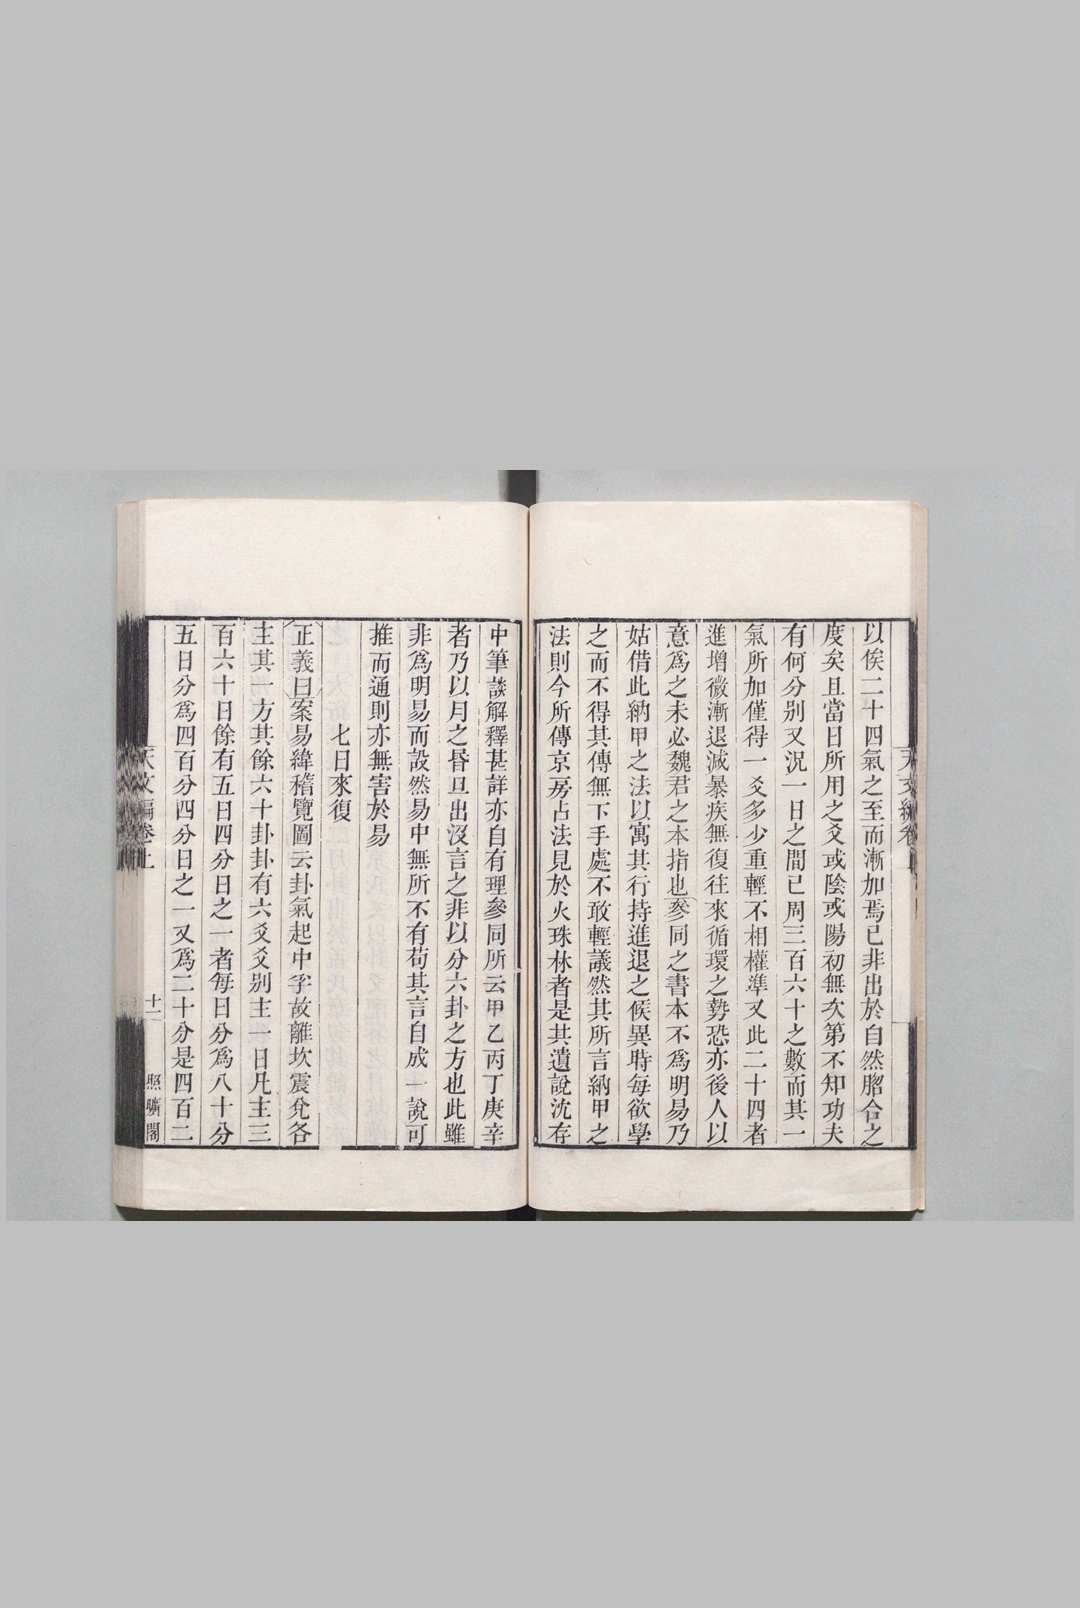 以俟二十四氣之至而漸加焉已非出於自然脗合之
度矣且當日所用之爻或陰或陽初無次第不知功夫
有何分别又況一日之間已周三百六十之數而其一
氣所加僅得一爻多少重輕不相權準又此二十四者
進增微漸退減暴疾無復往來循環之勢恐亦後人以
意爲之未必魏君之本指也參同之書本不爲明易乃
姑借此納甲之法以寓其行持進退之候異時每欲學
之而不得其傳無下手處不敢輕議然其所言納甲之
法則今所傳京房占法見於火珠林者是其遺說沈存
中筆談解釋甚詳亦自有理參同所云甲乙丙丁庚辛
者乃以月之昏旦出沒言之非以分六卦之方也此雖
非爲明易而設然易中無所不有苟其言自成一說可
推而通則亦無害於易
七日來復
正義曰案易緯稽覽圖云卦氣起中孚故離坎震兌各
主其一方其餘六十卦卦有六爻爻别主一日凡主三
百六十日餘有五日四分日之一者每日分爲八十分
五日分爲四百分四分日之一又爲二十分是四百二
天文編卷上
十一
照曠閣